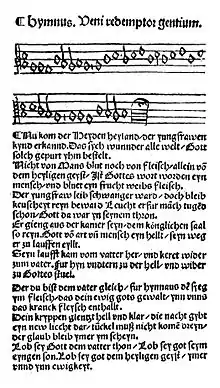 Hymnus. Veni redemptor gentium.
Nu kom der Heyden heyland / der yungfrawen
kynd erkannd. Das sych wunnder alle welt / Gott
solch gepurt yhm bestelt.
Nicht von Mans blut noch von fleisch / allein võ
dem heyligen geyst / Ist Gottes wort worden eyn
mensch / vnd bluet eyn frucht weibs fleisch.
Der yungfraw leib schwanger ward / doch bleib
keuscheyt reyn beward Leucht erfur māch tugēd
schon / Gott da war yn seynem thron.
Er gieng aus der kamer seyn / dem könglichen saal
so reyn. Gott võ art vñ mensch eyn hellt / seyn weg
er zu lauffen eyllt.
Seyn laufft kam vom vatter her / vnd keret wider
zum vater. fur hyn vndtern zu der hell / vnd wider
zu Gottes stuel.
Der du bist dem vater gleich / fur hynnaus dē sieg
ym fleisch / das dein ewig gots gewalt / ynn vnns
das kranck fleysch enthallt.
Dein kryppen glentzt hell vnd klar / die nacht gybt
eyn new liecht dar / tuckel muß nicht komē dreyn /
der glaub bleib ymer ym scheyn.
Lob sey Gott dem vatter thon / Lob sey got seym
eyngen son. Lob sey got dem heyligen geyst / ymer
vnnd ynn ewigkeyt.